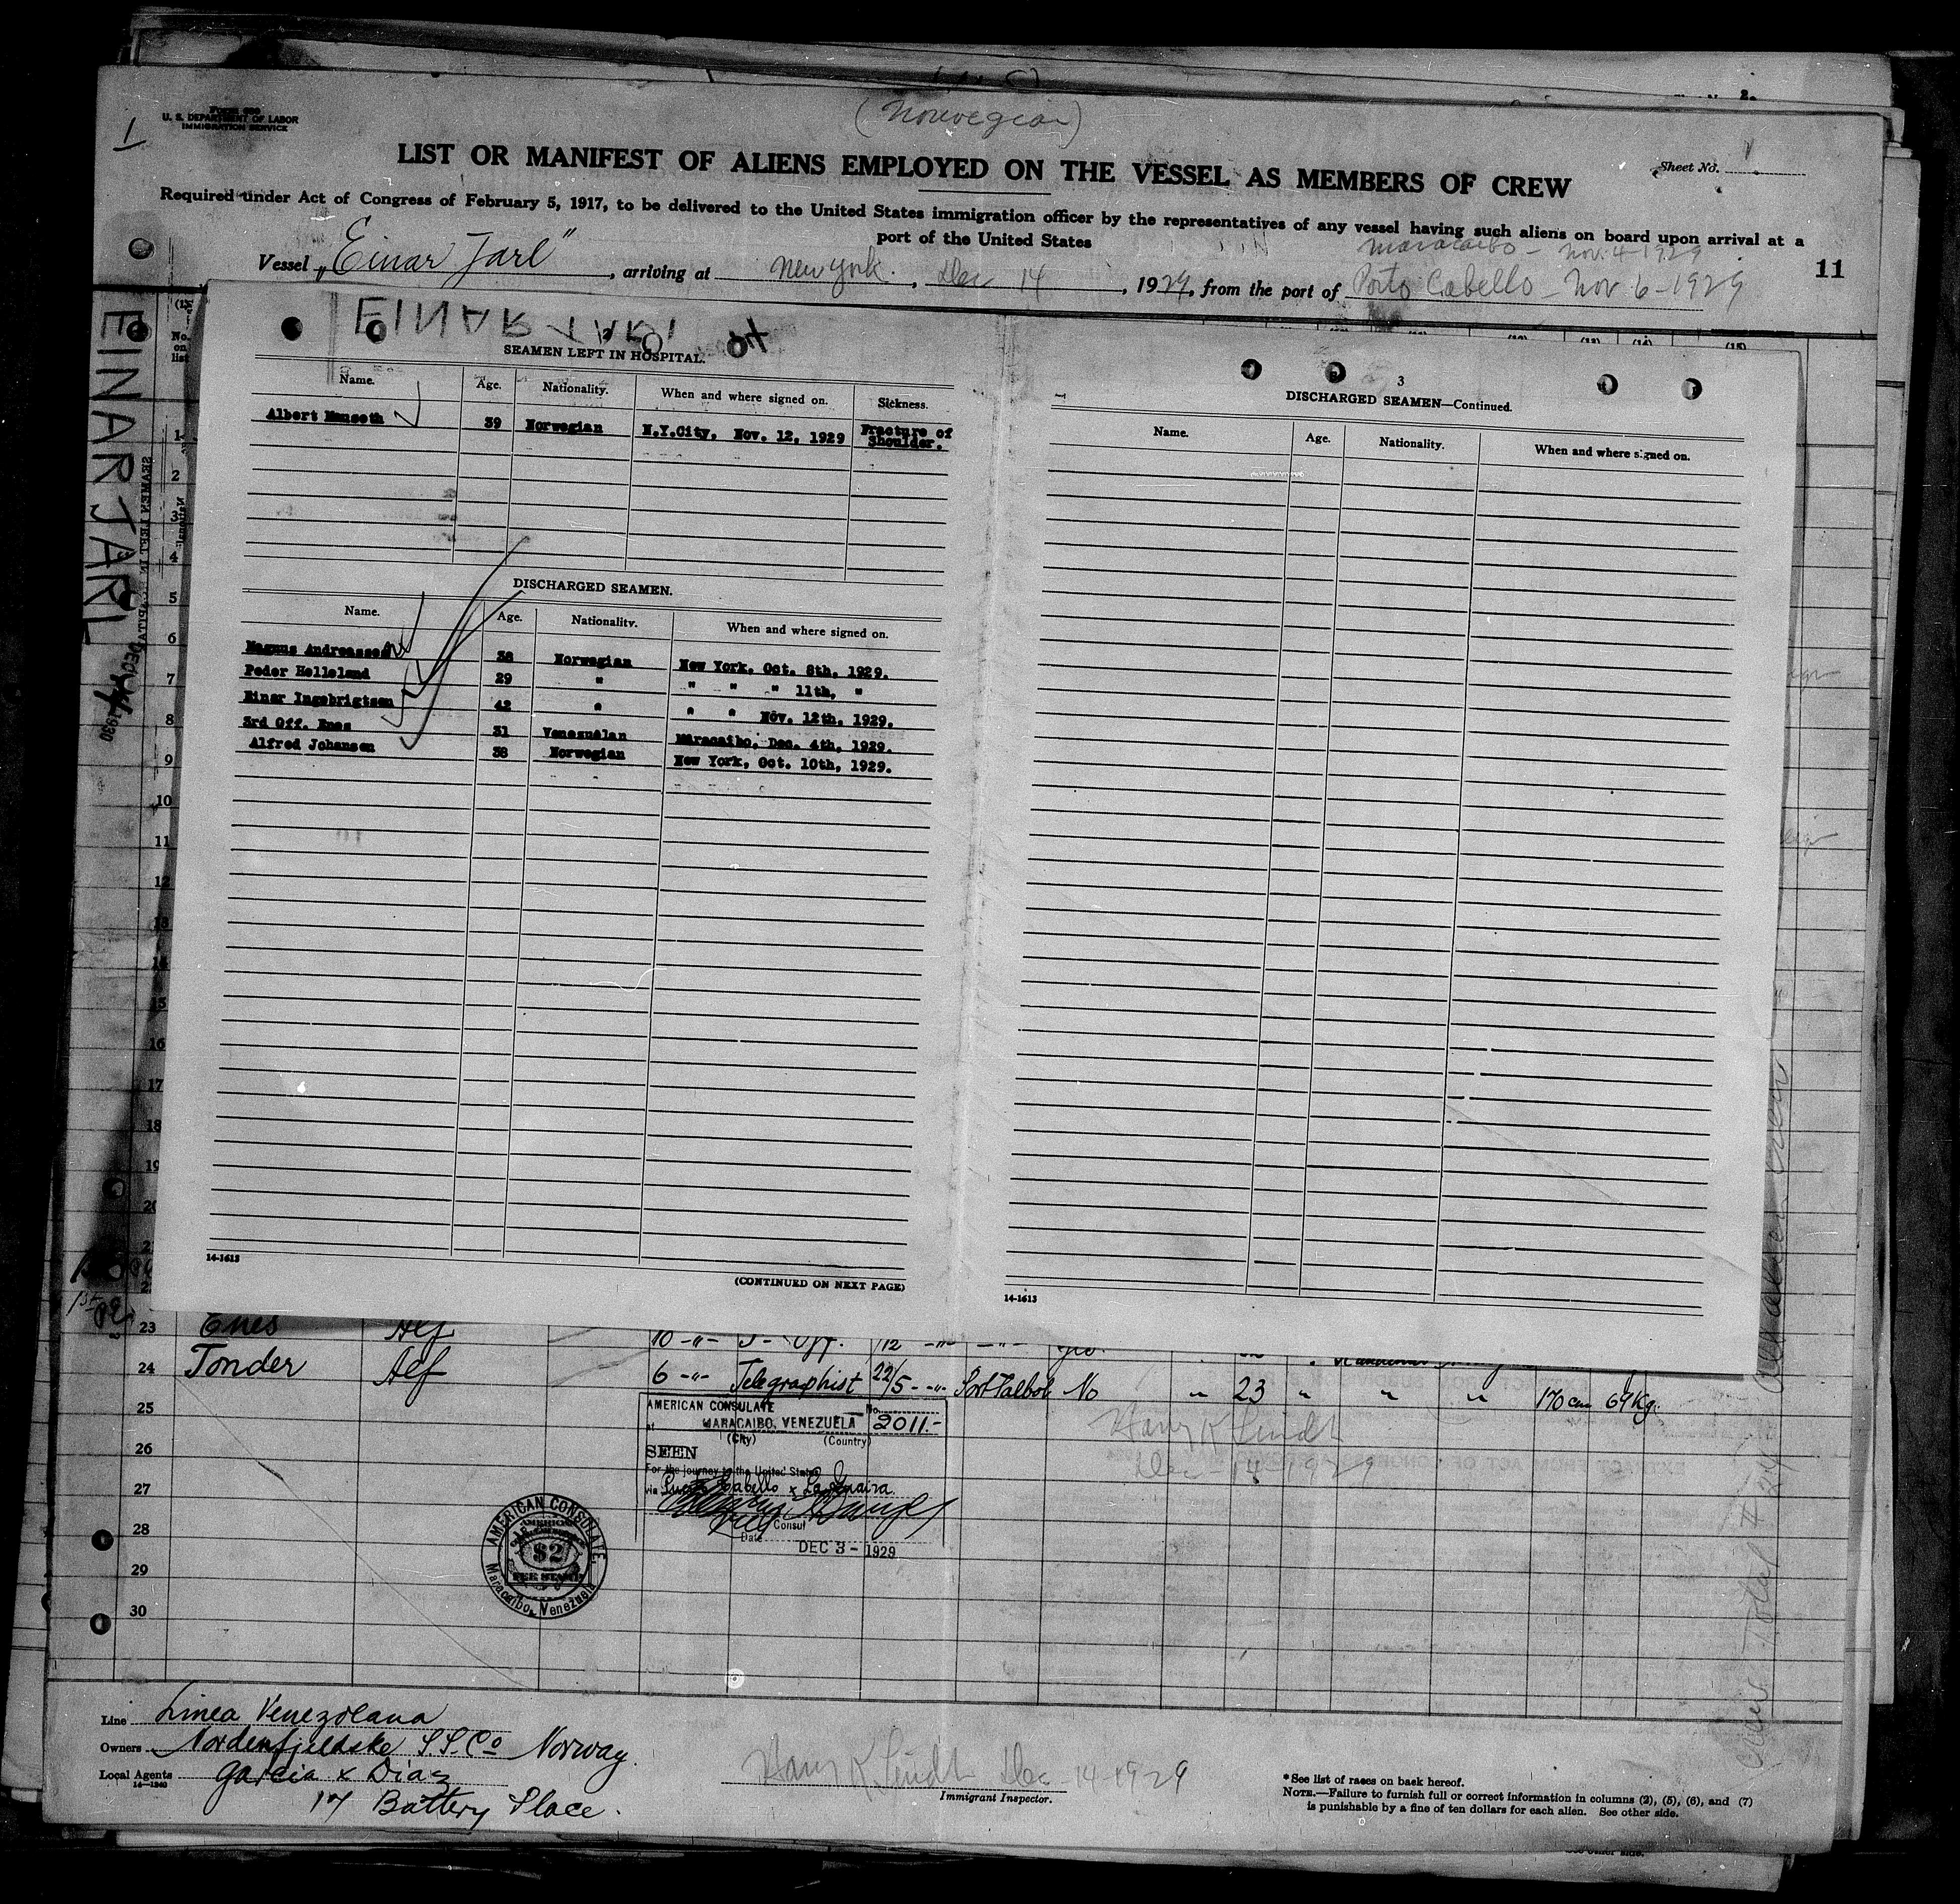 FORM 680
U. S. DEPARTMENT OF LABOR
IMMIGRATION SERVICE
1
(Norwegian)
Sheet No.
LIST OR MANIFEST OF ALIENS EMPLOYED ON THE VESSEL AS MEMBERS OF CREW
Required under Act of Congress of February 5, 1917, to be delivered to the United States immigration officer by the representatives of any vessel having such aliens on board upon arrival at a
port of the United States
Maracaibo - Nov. 4-1929
Vessel „Einar Jarl", arriving at New York, Dec 14, 1929, from the port of Porto Cabello - Nov 6-1929
11
EINAR JARL
No. on list
SEAMEN LEFT IN HOSPITAL.
Name. Age. Nationality. When and where signed on. Sickness.
Albert Manseth 39 Norwegian N.Y.City, Nov. 12, 1929 Fracture of Shoulder.
DISCHARGED SEAMEN.
Name. Age. Nationality. When and where signed on.
Magnus Andreassen 38 Norwegian New York, Oct. 8th, 1929.
Peder Helleland 29 " " " " 11th, "
Einar Ingebrigtsen 42 " " " Nov. 12th, 1929.
3rd Off. Enes 31 Venezuelan Maracaibo, Dec. 4th, 1929.
Alfred Johansen 38 Norwegian New York, Oct. 10th, 1929.
14-1613
(CONTINUED ON NEXT PAGE)
3
DISCHARGED SEAMEN—Continued.
Name. Age. Nationality. When and where signed on.
14-1613
1
2
3
4
5
6
7
8
9
10
11
12
13
14
15
16
17
18
19
20
23 Enes Alf 10 -"- Off. 12 -"- -"-
24 Tonder Alf 6 -"- Telegraphist 22/5 -"- Port Talbot No " 23 " " " 170 cm 69 Kg.
25
26
27
28
29
30
AMERICAN CONSULATE No. 2011.-
at MARACAIBO, VENEZUELA
(City) (Country)
SEEN
For the journey to the United States
via Puerto Cabello & La Guaira.
Vice Consul
Date DEC 3 - 1929
AMERICAN CONSULATE,
AMERICAN
$2
FEE STAMP
Maracaibo, Venezuela
Harry K. Lindt
Dec-14-1929
Line Linea Venezolana
Owners Nordenfjeldske S.S. Co Norway.
Local Agents Garcia & Diaz
14-1240
17 Battery Place.
Harry K. Lindt Dec 14-1929
Immigrant Inspector.
*See list of races on back hereof.
NOTE.—Failure to furnish full or correct information in columns (2), (5), (6), and (7)
is punishable by a fine of ten dollars for each alien. See other side.